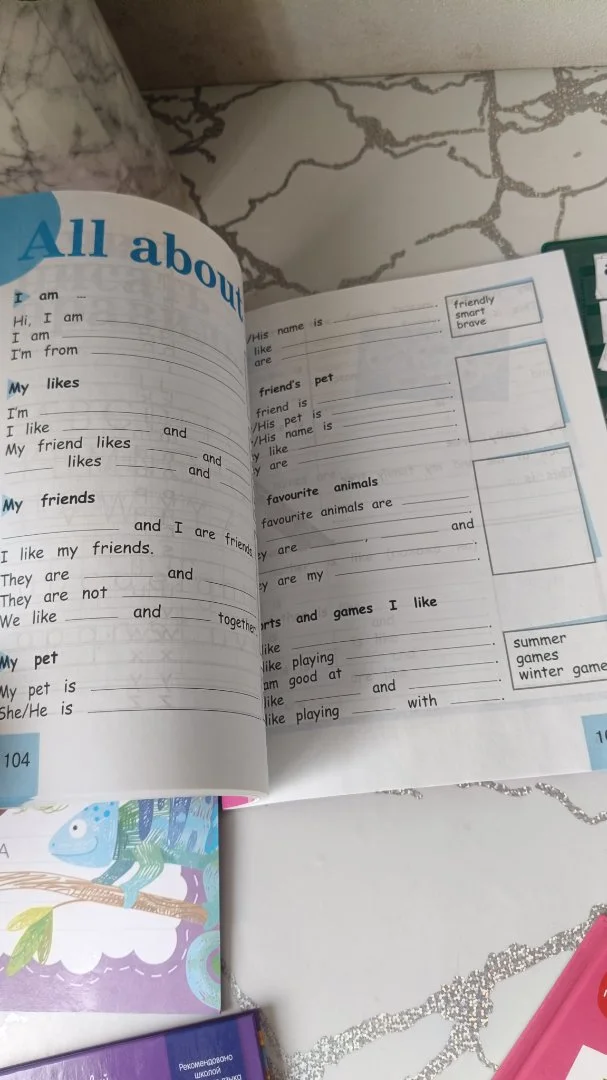 All about
I am ...
Hi, I am
I am
I'm from
My likes
I'm
I like and
My friend likes and
likes and
My friends
and I are friends
I like my friends.
They are and
They are not
We like and together
My pet
My pet is
She/He is
104
/His name is .
like .
are .
friendly
smart
brave
friend's pet
friend is .
/His pet is .
/His name is .
like .
are .
favourite animals
favourite animals are
.
are , and
.
are my .
and games I like
like .
like playing .
am good at .
like and .
like playing with .
summer
games
winter game
A
Рекомендовано
школой